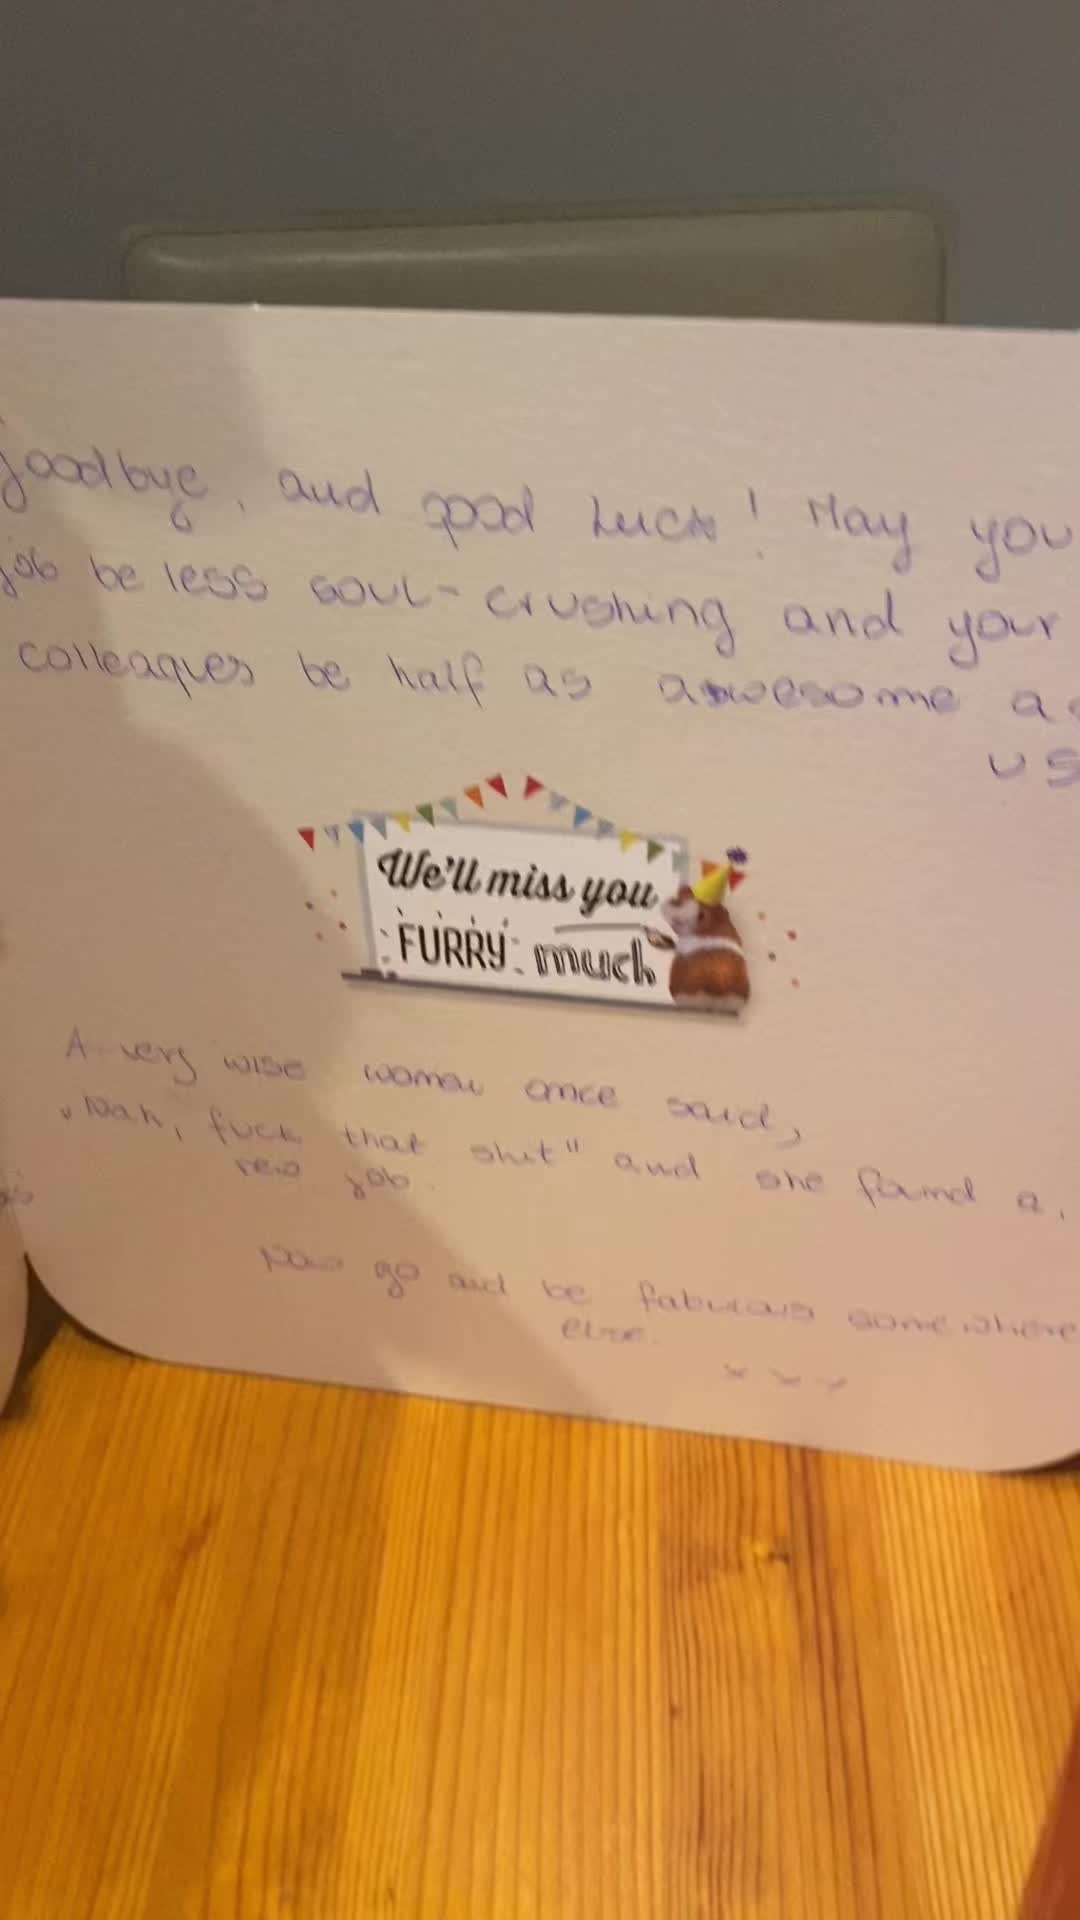 Goodbye, and good luck! May you
job be less soul-crushing and your
colleagues be half as awesome as
us
We'll miss you
FURRY much
A very wise woman once said,
„Nah, fuck that shit" and she found a
new job.
Now go and be fabulous somewhere
else.
x x x